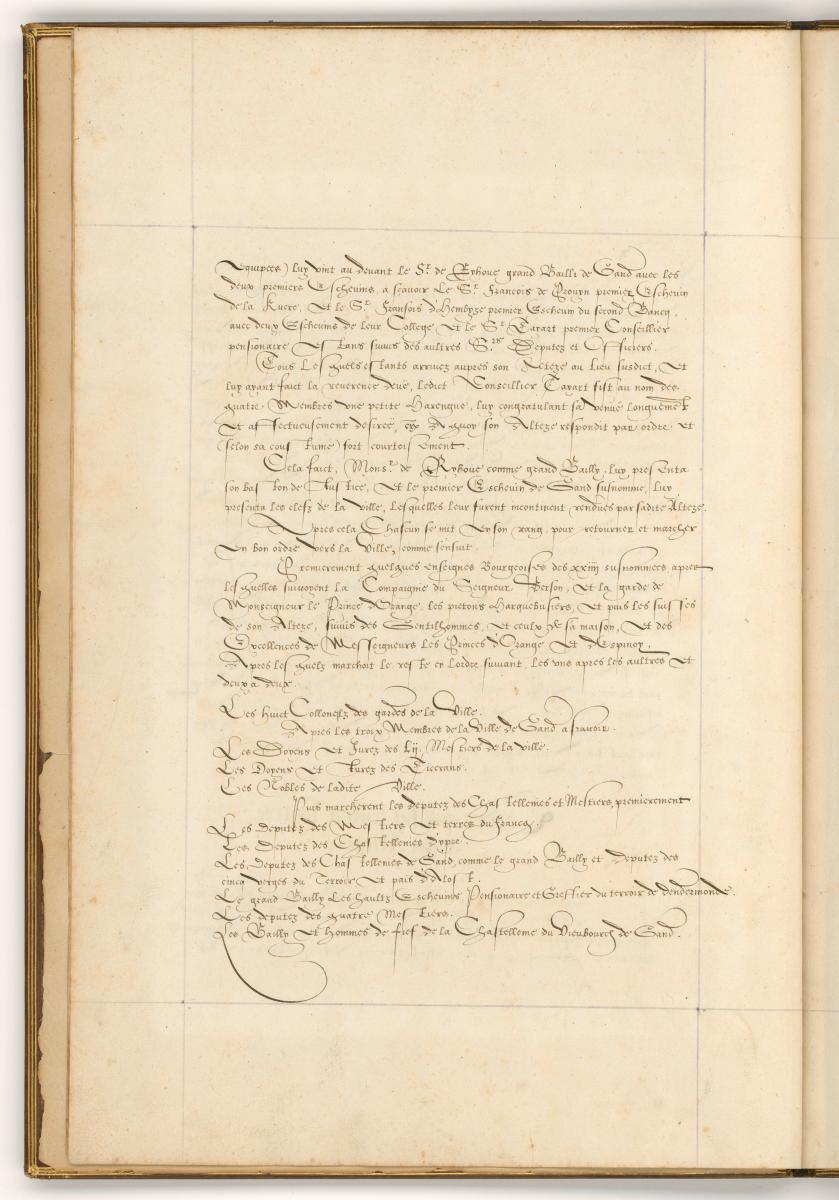 equipees) luy vint au devant le Sr. de Ryhove grand Bailli de Gand avec les
deux premiers Eschevins, a sçavoir Le Sr. Francois de Provyn premier Eschevin
de la Kuere, Et le Sr. Fransois d'Hembyze premier Eschevin du second Bancq,
avec deux Eschevins de leur College Et le Sr. Tayart premier Conseillier
pensionaire Estans suivis des aultres Srs. Deputez et Officiers.
Tous Lesquels estants arrivez aupres son Alteze au lieu susdict, Et
luy ayant faict la reverence deüe, ledict Conseillier Tayart fist au nom des
quatre Membres une petite Harengue, luy congratulant sa venüe longuement
Et affectueusement desiree, A quoy son Alteze respondit par ordre et
(selon sa coustume) fort courtoisement.
Cela faict, Monsr. de Ryhove comme grand Bailly, luy presenta
son baston de Justice, Et le premier Eschevin de Gand susnomme, luy
presenta les clefz de la ville, Lesquelles leur furent incontinent rendües par sadite Alteze.
Apres cela Chascun se mit En son rang, pour retourner et marcher
En bon ordre vers la Ville, comme sensuit.
Premierement quelques enseignes Bourgeoises des xxiiij susnommees, apres
lesquelles suivoyent la Compaignie du Seigneur Berson, Et la garde de
Monseigneur le Prince d'Orange, les pietons Harquebusiers, Et puis les suisses
de son Alteze, suivis des Gentilhommes, et ceulx de sa maison, Et des
Excellences de Messeigneurs Les Princes d'Orange Et d'Espinoy,
Apres lesquelz marchoit le reste en l'ordre suivant, les uns apres les aultres Et
deux a deux.
Les huict Collonelz des gardes de la Ville.
Apres les troix Membres de la Ville de Gand asçavoir.
Les Doyens Et Jurez des Lij. Mestiers de la ville.
Les Doyens Et Jurez des Ticerans.
Les Nobles de ladite Ville.
Puis marcherent les deputez des Chastellenies et Mestiers, premierement
Les deputez des Mestiers Et terres du francq.
Les Deputez des Chastellenies d'ypre.
Les Deputez des Chastellenies de Gand, comme le grand Bailly et Deputez des
cincq verges du Terroir Et païs d'Alost.
Le grand Bailly Les haultz Eschevins, Pensionaire et Greffier du terroir de dendermonde.
Les deputez des quatre Mestiers.
Les Bailly Et hommes de fief de la Chastellenie du Vieubourch de Gand.